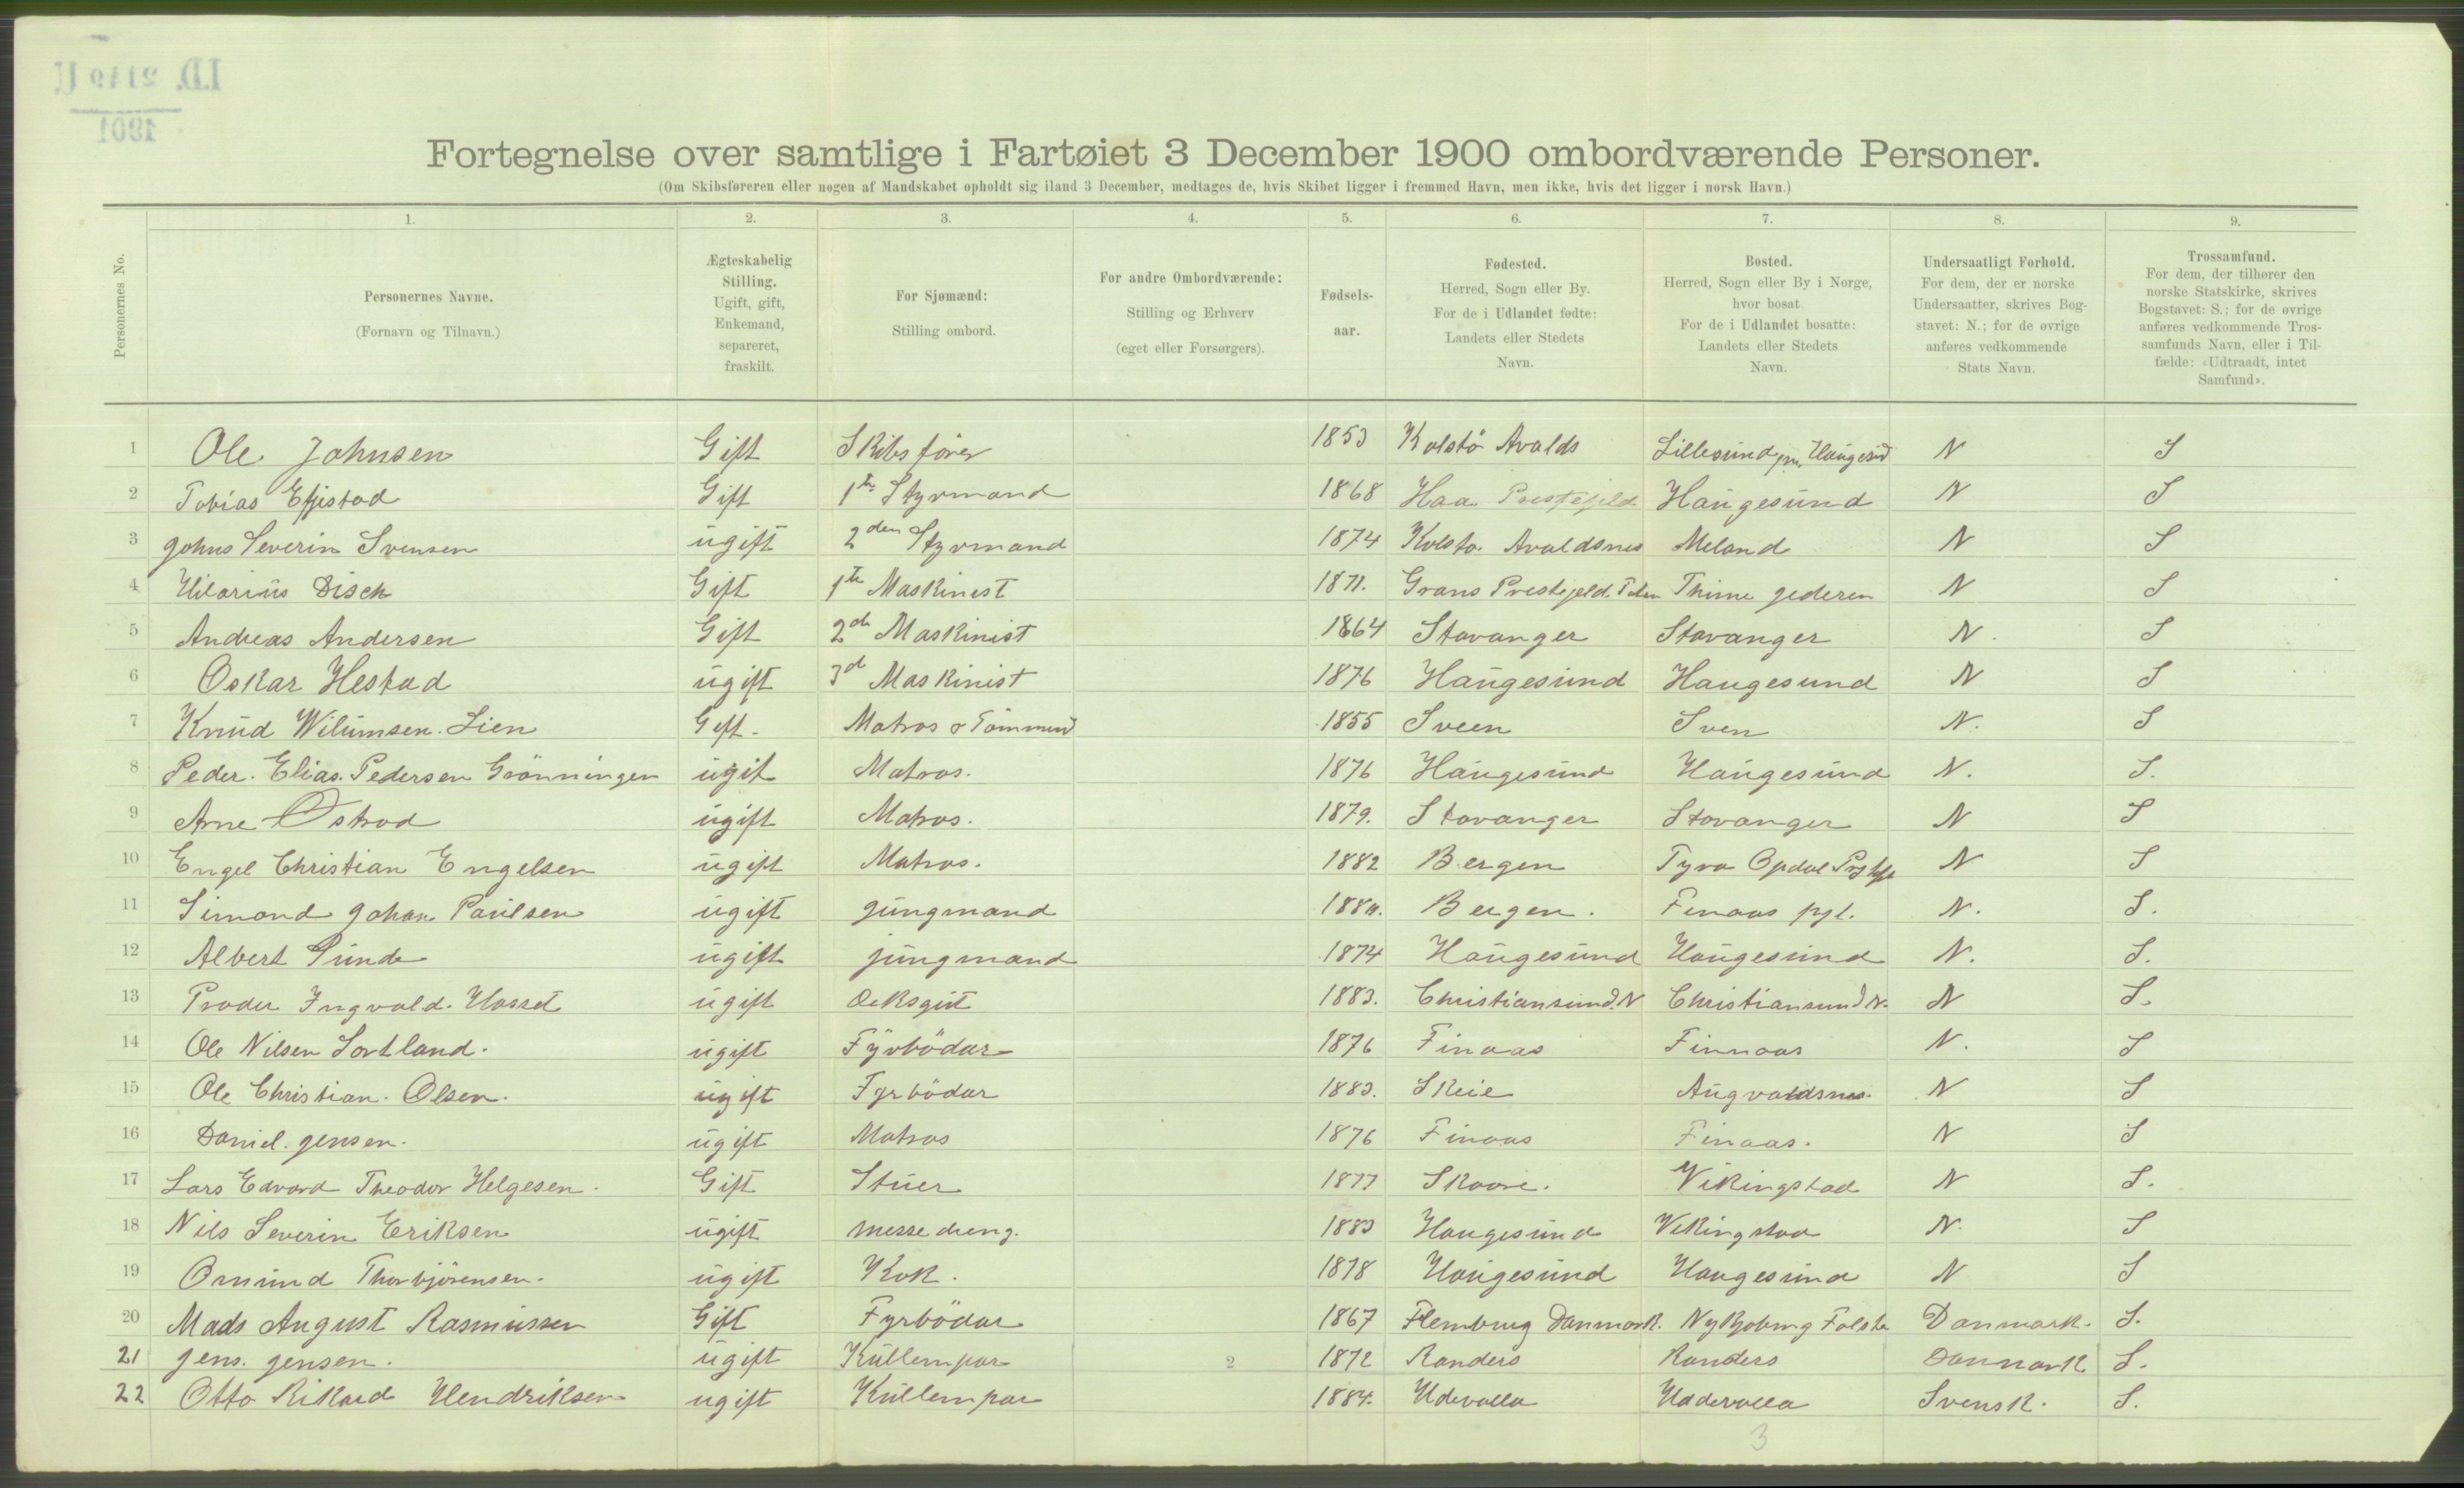 I.D. 2149 U
1901
Fortegnelse over samtlige i Fartøiet 3 December 1900 ombordværende Personer.
(Om Skibsføreren eller nogen af Mandskabet opholdt sig iland 3 December, medtages de, hvis Skibet ligger i fremmed Havn, men ikke, hvis det ligger i norsk Havn.)
Personernes No.
1. Personernes Navne. (Fornavn og Tilnavn.)
2. Ægteskabelig Stilling. Ugift, gift, Enkemand, separeret, fraskilt.
3. For Sjømænd: Stilling ombord.
4. For andre Ombordværende: Stilling og Erhverv (eget eller Forsørgers).
5. Fødselsaar.
6. Fødested. Herred, Sogn eller By. For de i Udlandet fødte: Landets eller Stedets Navn.
7. Bosted. Herred, Sogn eller By i Norge, hvor bosat. For de i Udlandet bosatte: Landets eller Stedets Navn.
8. Undersaatligt Forhold. For dem, der er norske Undersaatter, skrives Bogstavet: N.; for de øvrige anføres vedkommende Stats Navn.
9. Trossamfund. For dem, der tilhører den norske Statskirke, skrives Bogstavet: S.; for de øvrige anføres vedkommende Trossamfunds Navn, eller i Tilfælde: «Udtraadt, intet Samfund».
1 Ole Johnsen Gift Skibsfører 1853 Kolstö Avalds Lillesund pr. Haugesd N S
2 Tobias Gift 1te Styrmand 1868 Haa Prestegjeld Haugesund N S
3 Johns Severin Svensen ugift 2den Styrmand 1874 Kolstø Avaldsnes Meland N S
4 Hilarius Disch Gift 1te Maskinist 1871. Grans Prestegjeld. Thime Jederen N S
5 Andreas Andersen Gift 2de Maskinist 1864 Stavanger Stavanger N. S
6 Oskar Hestad ugift 3d Maskinist 1876 Haugesund Haugesund N S
7 Knud Wilumsen. Lien Gift. Matros & Tömmmd 1855 Sveen Sven N. S
8 Peder. Elias. Pedersen Grönningen ugit Matros. 1876 Haugesund Haugesund N. S.
9 Arne Østrod ugift Matros. 1879. Stavanger Stavanger N S
10 Engel Christian Engelsen ugift Matros. 1882 Bergen Opdal N S
11 Simond Johan Paulsen ugift Jungmand Bergen. Finaas pgl. N. S.
12 Albert Sunde ugift jungmand 1874 Haugesund Haugesund N. S.
13 Ingvald. Hasset ugift Deksgut 1883. Christiansund. N Christiansund N. N S.
14 Ole Nilsen Sortland. ugift Fyrbödar 1876 Finaas Finnaas N. S
15 Ole Christian. Olsen. ugift Fyrbödar 1883. Skeie Augvaldsnes. N S
16 Daniel. Jensen. ugift Matros 1876 Finaas Finaas. N S
17 Lars Edvard Theodor Helgesen. Gift Stuer 1877 Skaare. Vikingstad N S.
18 Nils Severin Eriksen ugift messedreng. 1883 Haugesund Vekingstad N. S
19 Omund Thorbjörensen. ugift Kok. 1878 Haugesund Haugesund N S
20 Mads August Rasmussen Gift Fyrbödar 1867 Flemburg Danmark. Nykjobing Falste Danmark. S.
21 Jens. Jensen. ugift Kullempar 2 1872 Randers Randers Danmark S.
22 Otto Rikard Hendriksen ugift Kullempar 1884. Udevalla Uddevalla Svensk. S.
3